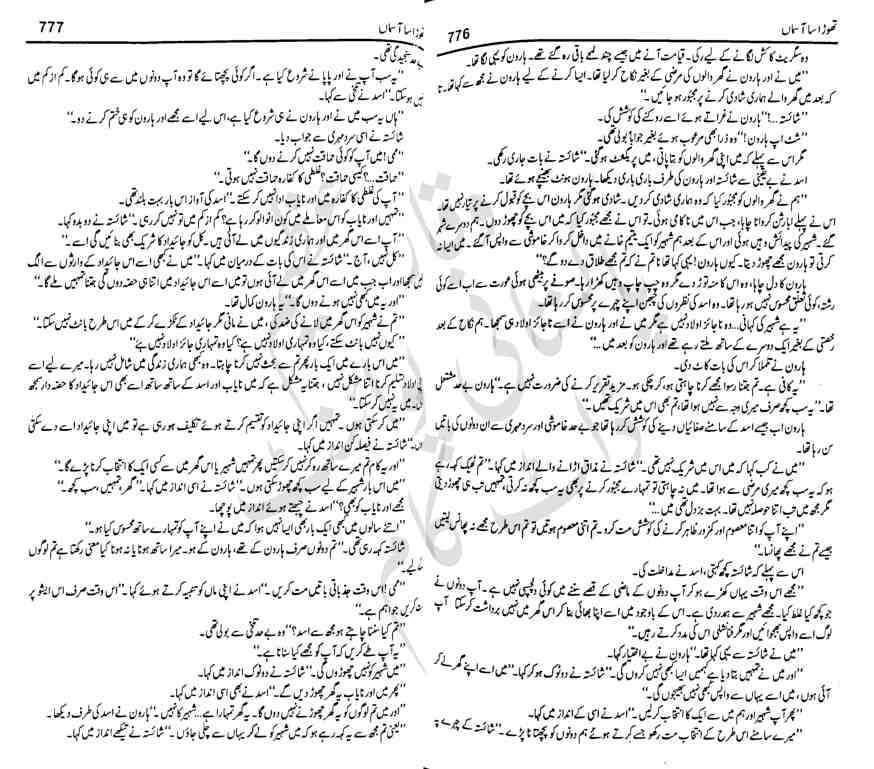 تھوڑا سا آسماں
776
وہ سگریٹ کا کش لگانے کے لیے رکی۔ قیامت آنے میں جیسے چند لمحے باقی رہ گئے تھے۔ ہارون کو یہی لگا تھا۔
”میں نے اور ہارون نے گھر والوں کی مرضی کے بغیر نکاح کر لیا تھا۔ ایسا کرنے کے لیے ہارون نے مجھ سے کہا تھا۔ تا
کہ بعد میں گھر والے ہماری شادی کرنے پر مجبور ہو جائیں۔“
”شائستہ...!“ ہارون نے غراتے ہوئے اسے روکنے کی کوشش کی۔
”شٹ اپ ہارون!“ وہ ذرا بھی مرعوب ہوئے بغیر جواباً بولی تھی۔
مگر اس سے پہلے کہ میں اپنی گھر والوں کو بتا پاتی، میں پریگننٹ ہو گئی۔“ شائستہ نے بات جاری رکھی۔
اسد نے بے یقینی سے شائستہ اور ہارون کی طرف باری باری دیکھا۔ ہارون ہونٹ بھینچے ہوئے تھا۔
”ہم نے گھر والوں کو مجبور کیا کہ وہ ہماری شادی کر دیں۔ شادی ہو گئی مگر ہارون اس بچے کو قبول کرنے پر تیار نہیں تھا۔
اس نے پہلے ابارشن کروانا چاہا، جب اس میں ناکامی ہوئی۔ تو اس نے مجھے مجبور کیا کہ میں اس بچے کو چھوڑ دوں۔ ہم دوسرے شہر
گئے۔ شہیر کی پیدائش وہیں ہوئی اور اس کے بعد ہم شہیر کو ایک یتیم خانے میں داخل کروا کر خاموشی سے واپس آ گئے۔ میں ایسا نہ
کرتی تو ہارون مجھے چھوڑ دیتا۔ کیوں ہارون! یہی کہا تھا نا تم نے کہ تم مجھے طلاق دے دو گے؟“
ہارون کا دل چاہا، وہ اس کا منہ توڑ دے مگر وہ چپ چاپ وہیں کھڑا رہا۔ صوفے پر بیٹھی ہوئی عورت سے اب اسے کوئی
رشتہ، کوئی تعلق محسوس نہیں ہو رہا تھا۔ وہ اسد کی نظروں کی چبھن اپنے چہرے پر محسوس کر رہا تھا۔
”یہ ہے شہیر کی کہانی...... وہ ناجائز اولاد نہیں ہے مگر میں نے اور ہارون نے اسے ناجائز اولاد ہی سمجھا۔ ہم نکاح کے بعد
رخصتی کے بغیر ایک دوسرے کے ساتھ ملتے رہے تھے اور ہارون کو بعد میں...“
ہارون نے تلملا کر اس کی بات کاٹ دی۔
”یہ کافی ہے۔ تم جتنا رسوا مجھے کرنا چاہتی ہو، کر چکی ہو۔ مزید تقریر کرنے کی ضرورت نہیں ہے۔“ ہارون بے حد مشتعل
تھا۔ ”یہ سب کچھ صرف میری وجہ سے نہیں ہوا تھا، تم بھی اس میں شریک تھیں۔“
ہارون اب جیسے اسد کے سامنے صفائیاں دینے کی کوشش کر رہا تھا جو بے حد خاموشی اور سرد مہری سے ان دونوں کی باتیں
سن رہا تھا۔
”میں نے کب کہا کہ میں اس میں شریک نہیں تھی۔“ شائستہ نے مذاق اڑانے والے انداز میں کہا۔ ”تم ٹھیک کہہ رہے
ہو کہ یہ سب کچھ میری مرضی سے ہوا تھا۔ میں نہ چاہتی تو تمہارے مجبور کرنے پر بھی یہ سب کچھ نہ کرتی، تمہیں تب ہی چھوڑ دیتی
مگر مجھ میں تب اتنا حوصلہ نہیں تھا۔ بہت بزدل تھی میں...“
”اپنے آپ کو اتنا معصوم اور کمزور ظاہر کرنے کی کوشش مت کرو۔ تم اتنی معصوم ہوتیں تو تم اس طرح مجھے نہ پھانس لیتیں
جیسے تم نے مجھے پھانسا۔“
اس سے پہلے کہ شائستہ کچھ کہتی، اسد نے مداخلت کی۔
”مجھے اس وقت یہاں کھڑے ہو کر آپ دونوں کے ماضی کے قصے سننے میں کوئی دلچسپی نہیں ہے۔ آپ دونوں نے
جو کچھ کیا غلط کیا۔ مجھے شہیر سے ہمدردی ہے۔ اس کے باوجود میں اسے اپنا بھائی بنا کر اس گھر میں نہیں برداشت کر سکتا آپ
لوگ اسے واپس بھجوائیں اور مگر فنانشلی اس کی مدد کرتے رہیں۔“
”میں نے شائستہ سے یہی کہا تھا۔“ ہارون نے بے اختیار کہا۔
”اور میں نے تمہیں بتا دیا ہے ہمیں ایسا کبھی نہیں کروں گی۔“ شائستہ نے دو ٹوک ہو کر کہا۔ ”میں اسے اپنے گھر لے کر
آئی ہوں، میں اسے یہاں سے واپس کبھی نہیں بھیجوں گی۔“
”پھر آپ شہیر اور ہم میں سے ایک کا انتخاب کر لیں۔“ اسد نے اسی کے انداز میں کہا۔
”میرے سامنے اس طرح کے انتخاب مت رکھو جسے کرتے ہوئے ہم دونوں کو پچھتانا پڑے۔“ شائستہ کے چہرے پہ
تھوڑا سا آسماں
777
بے حد سنجیدگی تھی۔
”یہ سب آپ نے اور پاپا نے شروع کیا ہے۔ اگر کوئی پچھتائے گا تو وہ آپ دونوں میں سے ہی کوئی ہو گا۔ کم از کم میں
نہیں ہو سکتا۔“ اسد نے تلخی سے کہا۔
”ہاں یہ سب میں نے اور ہارون نے ہی شروع کیا ہے، اس لیے اسے مجھے اور ہارون کو ہی ختم کرنے دو۔“
شائستہ نے اسی سرد مہری سے جواب دیا۔
”ممی! میں آپ کو کوئی حماقت نہیں کرنے دوں گا۔“
”حماقت...؟ کیسی حماقت؟ غلطی کا کفارہ حماقت نہیں ہوتی۔“
”آپ کی غلطی کا کفارہ میں اور نایاب ادا نہیں کر سکتے۔“ اسد کی آواز اس بار بہت بلند تھی۔
”تمہیں اور نایاب کو اس معاملے میں کون انوالو کر رہا ہے؟ کم از کم میں تو نہیں کر رہی۔“ شائستہ نے دو بدو کہا۔
”آپ اسے اس گھر میں اور ہماری زندگیوں میں لے آئی ہیں۔ کل کو جائیداد کا شریک بھی بنائیں گی اسے۔“
”کل نہیں، آج۔“ شائستہ نے اس کی بات کے درمیان میں کہا۔ ”میں نے کبھی اسے اس جائیداد کے وارثوں سے الگ
نہیں سمجھا اور اب جب میں اسے اس گھر میں لے آئی ہوں تو میں اسے اس جائیداد میں اتنا ہی حصہ دوں گی جتنا تمہیں ملے گا۔“
”اور یہ میں کبھی نہیں ہونے دوں گا۔“ یہ ہارون کمال تھا۔
”تم نے شہیر کو اس گھر میں لانے کی ضد کی، میں نے مانی مگر جائیداد کے ٹکڑے کر کے میں اس طرح بانٹ نہیں سکتا۔“
”کیوں نہیں بانٹ سکتے، کیا وہ تمہاری اولاد نہیں ہے؟ کیا وہ تمہاری جائز اولاد نہیں ہے؟“
”میں اس بارے میں ایک بار پھر تم سے بحث نہیں کرنا چاہتا۔ وہ کبھی ہماری زندگی میں شامل نہیں رہا۔ میرے لیے اسے
اپنی اولاد تسلیم کرنا اتنا مشکل نہیں، جتنا یہ مشکل ہے کہ میں نایاب اور اسد کے ساتھ ساتھ اسے بھی اس جائیداد کا حصہ دار سمجھ
لوں۔ میں یہ نہیں کر سکتا۔“
”میں کر سکتی ہوں۔ تمہیں اگر اپنی جائیداد کو تقسیم کرتے ہوئے تکلیف ہو رہی ہے تو میں اپنی جائیداد اسے دے سکتی
ہوں۔“ شائستہ نے فیصلہ کن انداز میں کہا۔
”اور یہ کام تم میرے ساتھ رہ کر نہیں کر سکتیں پھر تمہیں شہیر یا اس گھر میں سے کسی ایک کا انتخاب کرنا پڑے گا۔“
”میں اس بار شہیر کے لیے سب کچھ چھوڑ سکتی ہوں۔“ شائستہ نے اسی انداز میں کہا۔ ”گھر، تمہیں، سب کچھ۔“
مجھے اور نایاب کو بھی؟“ اسد نے چبھتے ہوئے انداز میں پوچھا۔
”اتنے سالوں میں کبھی ایک بار بھی ایسا نہیں ہوا کہ میں نے اپنے آپ کو تمہارے ساتھ محسوس کیا ہو۔“
شائستہ کہہ رہی تھی۔ ”تم دونوں صرف ہارون کے تھے، ہارون کے ہو۔ میرا ساتھ ہونا یا نہ ہونا کیا معنی رکھتا ہے تم لوگوں
کے لیے۔“
”ممی! اس وقت جذباتی باتیں مت کریں۔“ اسد نے اپنی ماں کو تنبیہ کرتے ہوئے کہا۔ ”اس وقت صرف اس ایشو پر
بات کریں جو اہم ہے۔“
”تم کیا سننا چاہتے ہو مجھ سے اسد؟“ وہ بے حد تلخی سے بولی تھی۔
”یہ آپ طے کریں کہ آپ کو مجھے کیا سنانا ہے۔“
”میں شہیر کو نہیں چھوڑوں گی۔“ شائستہ نے دو ٹوک انداز میں کہا۔
”پھر میں اور نایاب یہ گھر چھوڑ دیں گے۔“ اسد نے بھی اسی انداز میں کہا۔
”اور میں تم لوگوں کو یہ گھر چھوڑنے نہیں دوں گا۔ یہ گھر تمہارا ہے... شہیر کا نہیں۔“ ہارون نے اسد کی طرف دیکھا۔
”یعنی تم مجھ سے یہ کہہ رہے ہو کہ میں شہیر کو لے کر یہاں سے چلی جاؤں۔“ شائستہ نے تیکھے انداز میں کہا۔